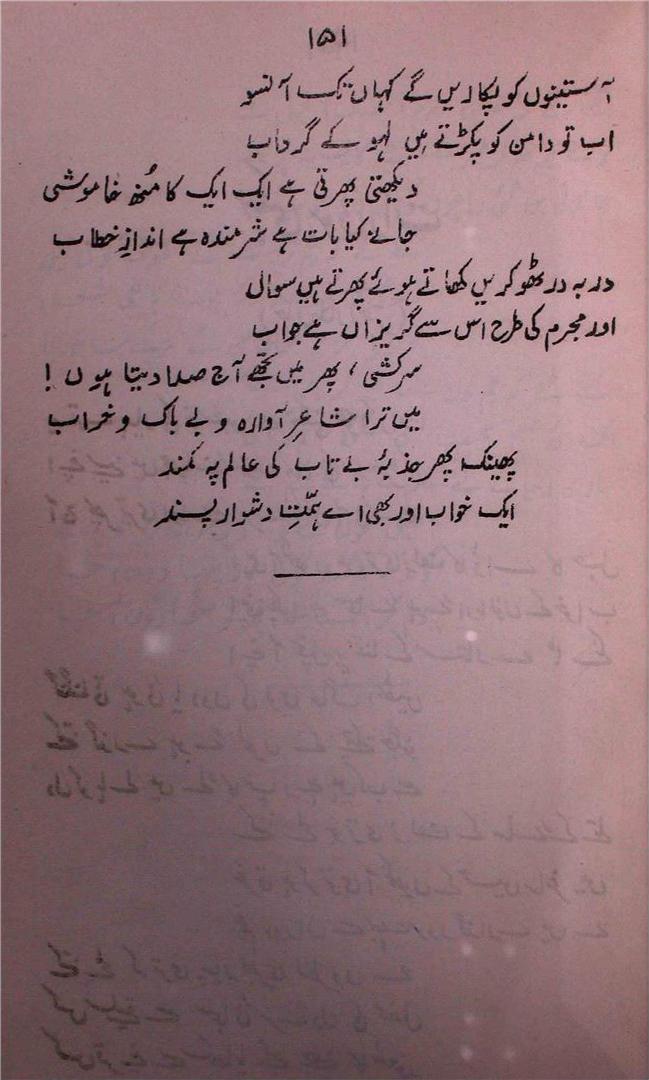 ۱۵۱
آستینوں کو پکاریں گے کہاں تک آنسو
اب تو دامن کو پکڑتے ہیں لہو کے گرداب
دیکھتی پھرتی ہے ایک ایک کا مُنھ خاموشی
جانے کیا بات ہے شرمندہ ہے اندازِ خطاب
در بہ در ٹھوکریں کھاتے ہوئے پھرتے ہیں سوال
اور مجرم کی طرح اس سے گریزاں ہے جواب
سرکشی، پھر میں تجھے آج صدا دیتا ہوں!
میں ترا شاعرِ آوارہ و بے باک و خراب
پھینک پھر جذبۂ بے تاب کی عالم پہ کمند
ایک خواب اور بھی اے ہمّتِ دشوار پسند